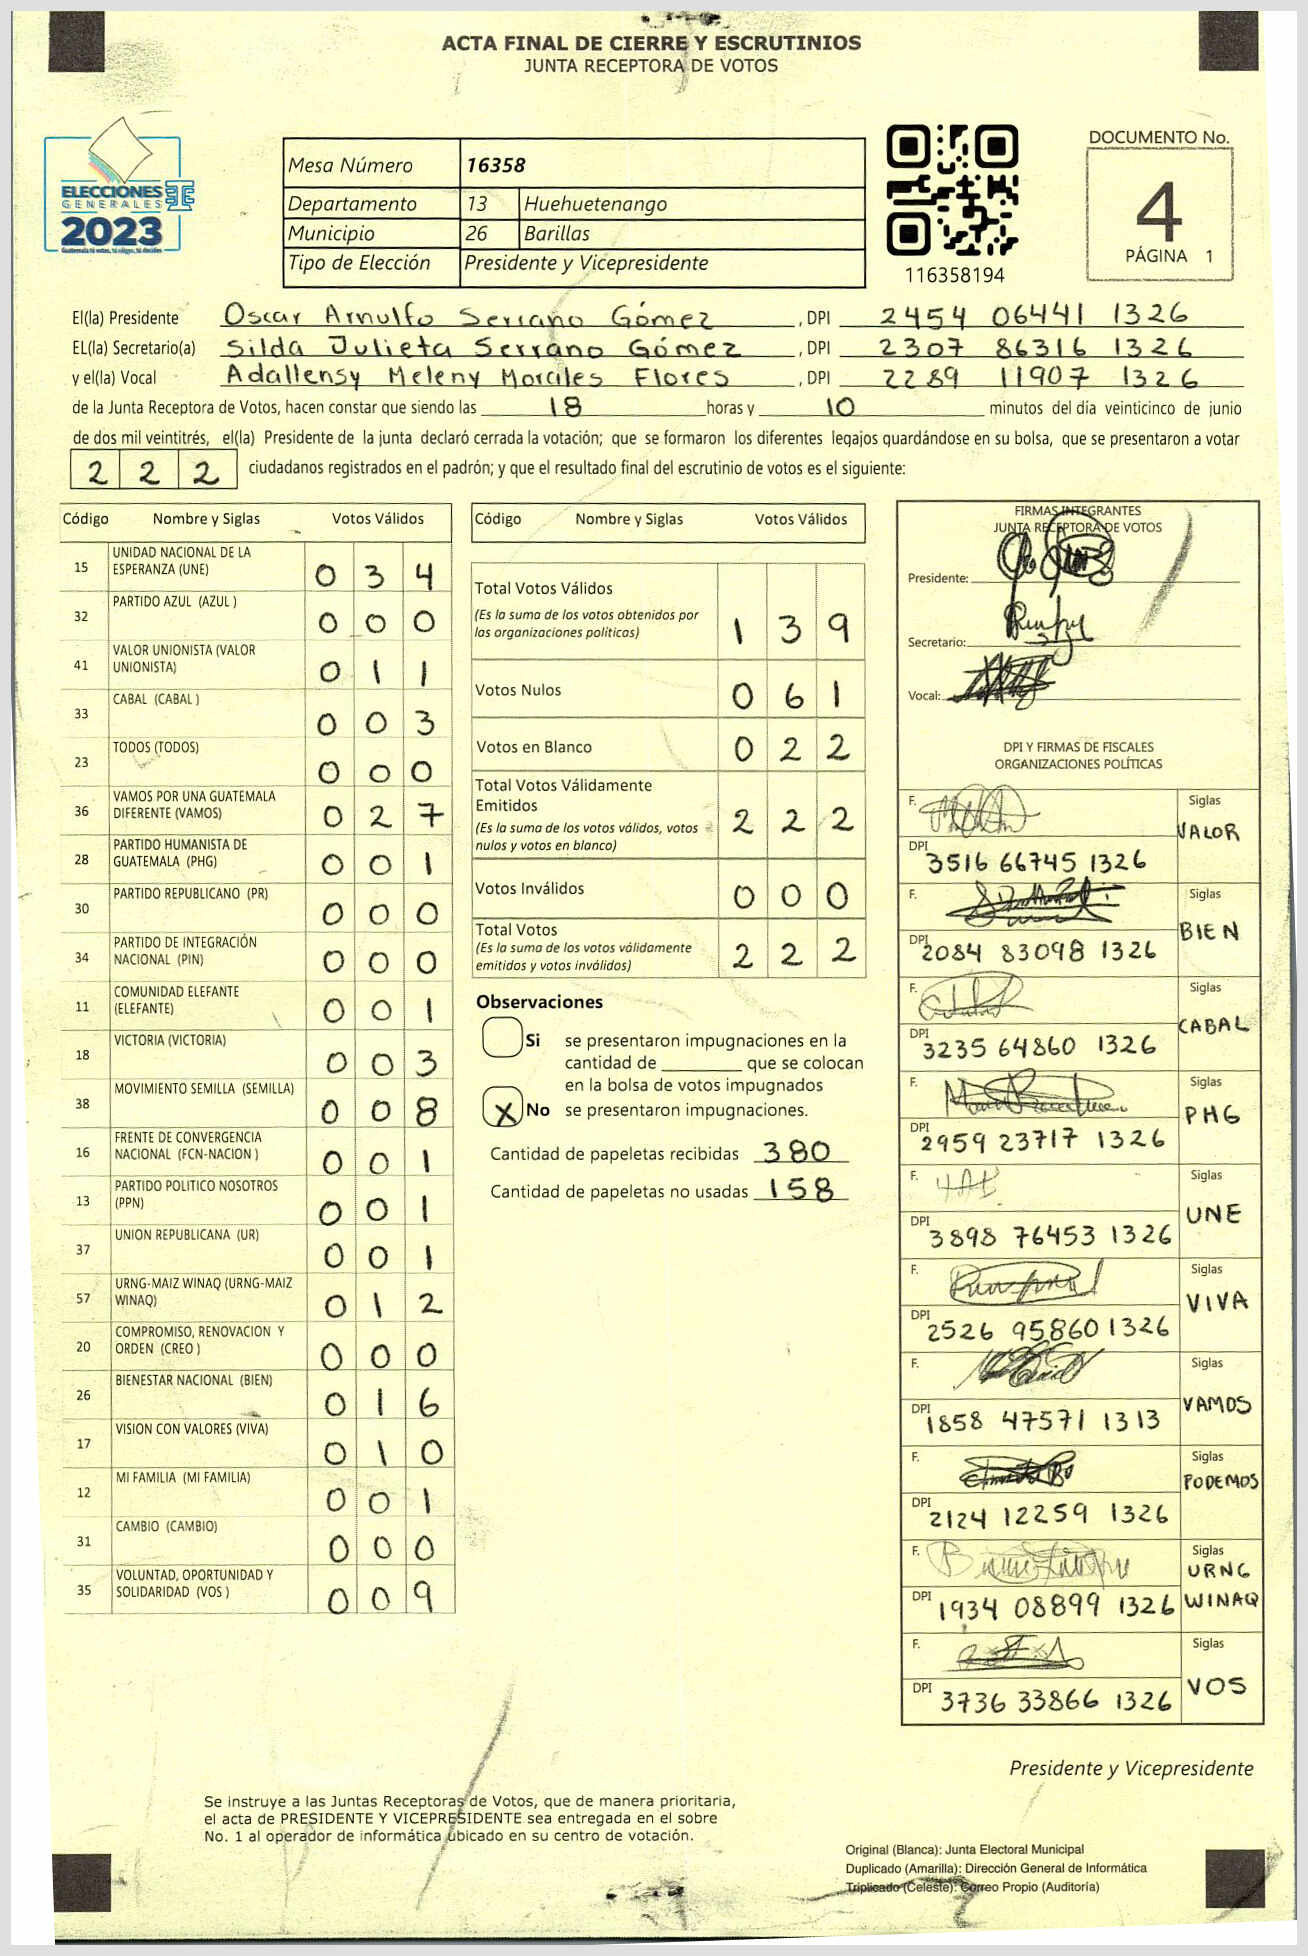 ACTA FINAL DE CIERRE Y ESCRUTINIOS
JUNTA RECEPTORA DE VOTOS
ELECCIONES
GENERALES
2023
Mesa Número 16358
Departamento 13 Huehuetenango
Municipio 26 Barillas
Tipo de Elección Presidente y Vicepresidente
116358194
DOCUMENTO No.
4
PÁGINA 1
El(la) Presidente Oscar Arnulfo Serrano Gómez, DPI 2454 06441 1326
EL(la) Secretario(a) Silda Julieta Serrano Gómez, DPI 2307 86316 1326
y el(la) Vocal Adallensy Meleny Morales Flores, DPI 2289 11907 1326
de la Junta Receptora de Votos, hacen constar que siendo las 18 horas y 10 minutos del día veinticinco de junio
de dos mil veintitrés, el(la) Presidente de la junta declaró cerrada la votación; que se formaron los diferentes legajos guardándose en su bolsa, que se presentaron a votar
222 ciudadanos registrados en el padrón; y que el resultado final del escrutinio de votos es el siguiente:
Código Nombre y Siglas Votos Válidos
15 UNIDAD NACIONAL DE LA ESPERANZA (UNE) 0 3 4
32 PARTIDO AZUL (AZUL ) 0 0 0
41 VALOR UNIONISTA (VALOR UNIONISTA) 0 1 1
33 CABAL (CABAL ) 0 0 3
23 TODOS (TODOS) 0 0 0
36 VAMOS POR UNA GUATEMALA DIFERENTE (VAMOS) 0 2 7
28 PARTIDO HUMANISTA DE GUATEMALA (PHG) 0 0 1
30 PARTIDO REPUBLICANO (PR) 0 0 0
34 PARTIDO DE INTEGRACIÓN NACIONAL (PIN) 0 0 0
11 COMUNIDAD ELEFANTE (ELEFANTE) 0 0 1
18 VICTORIA (VICTORIA) 0 0 3
38 MOVIMIENTO SEMILLA (SEMILLA) 0 0 8
16 FRENTE DE CONVERGENCIA NACIONAL (FCN-NACION ) 0 0 1
13 PARTIDO POLITICO NOSOTROS (PPN) 0 0 1
37 UNION REPUBLICANA (UR) 0 0 1
57 URNG-MAIZ WINAQ (URNG-MAIZ WINAQ) 0 1 2
20 COMPROMISO, RENOVACION Y ORDEN (CREO ) 0 0 0
26 BIENESTAR NACIONAL (BIEN) 0 1 6
17 VISION CON VALORES (VIVA) 0 1 0
12 MI FAMILIA (MI FAMILIA) 0 0 1
31 CAMBIO (CAMBIO) 0 0 0
35 VOLUNTAD, OPORTUNIDAD Y SOLIDARIDAD (VOS ) 0 0 9
Código Nombre y Siglas Votos Válidos
Total Votos Válidos 1 3 9
(Es la suma de los votos obtenidos por
las organizaciones políticas)
Votos Nulos 0 6 1
Votos en Blanco 0 2 2
Total Votos Válidamente
Emitidos 2 2 2
(Es la suma de los votos válidos, votos
nulos y votos en blanco)
Votos Inválidos 0 0 0
Total Votos 2 2 2
(Es la suma de los votos válidamente
emitidos y votos inválidos)
Observaciones
Si se presentaron impugnaciones en la
cantidad de ________ que se colocan
en la bolsa de votos impugnados
X No se presentaron impugnaciones.
Cantidad de papeletas recibidas 380
Cantidad de papeletas no usadas 158
FIRMAS INTEGRANTES
JUNTA RECEPTORA DE VOTOS
Presidente:
Secretario:
Vocal:
DPI Y FIRMAS DE FISCALES
ORGANIZACIONES POLÍTICAS
F. Siglas VALOR
DPI 3516 66745 1326
F. Siglas BIEN
DPI 2084 83098 1326
F. Siglas CABAL
DPI 3235 64860 1326
F. Siglas PHG
DPI 2959 23717 1326
F. Siglas UNE
DPI 3898 76453 1326
F. Siglas VIVA
DPI 2526 95860 1326
F. Siglas VAMOS
DPI 1858 47571 1313
F. Siglas PODEMOS
DPI 2124 12259 1326
F. Siglas URNG WINAQ
DPI 1934 08899 1326
F. Siglas VOS
DPI 3736 33866 1326
Presidente y Vicepresidente
Se instruye a las Juntas Receptoras de Votos, que de manera prioritaria,
el acta de PRESIDENTE Y VICEPRESIDENTE sea entregada en el sobre
No. 1 al operador de informática ubicado en su centro de votación.
Original (Blanca): Junta Electoral Municipal
Duplicado (Amarilla): Dirección General de Informática
Triplicado (Celeste): Correo Propio (Auditoría)